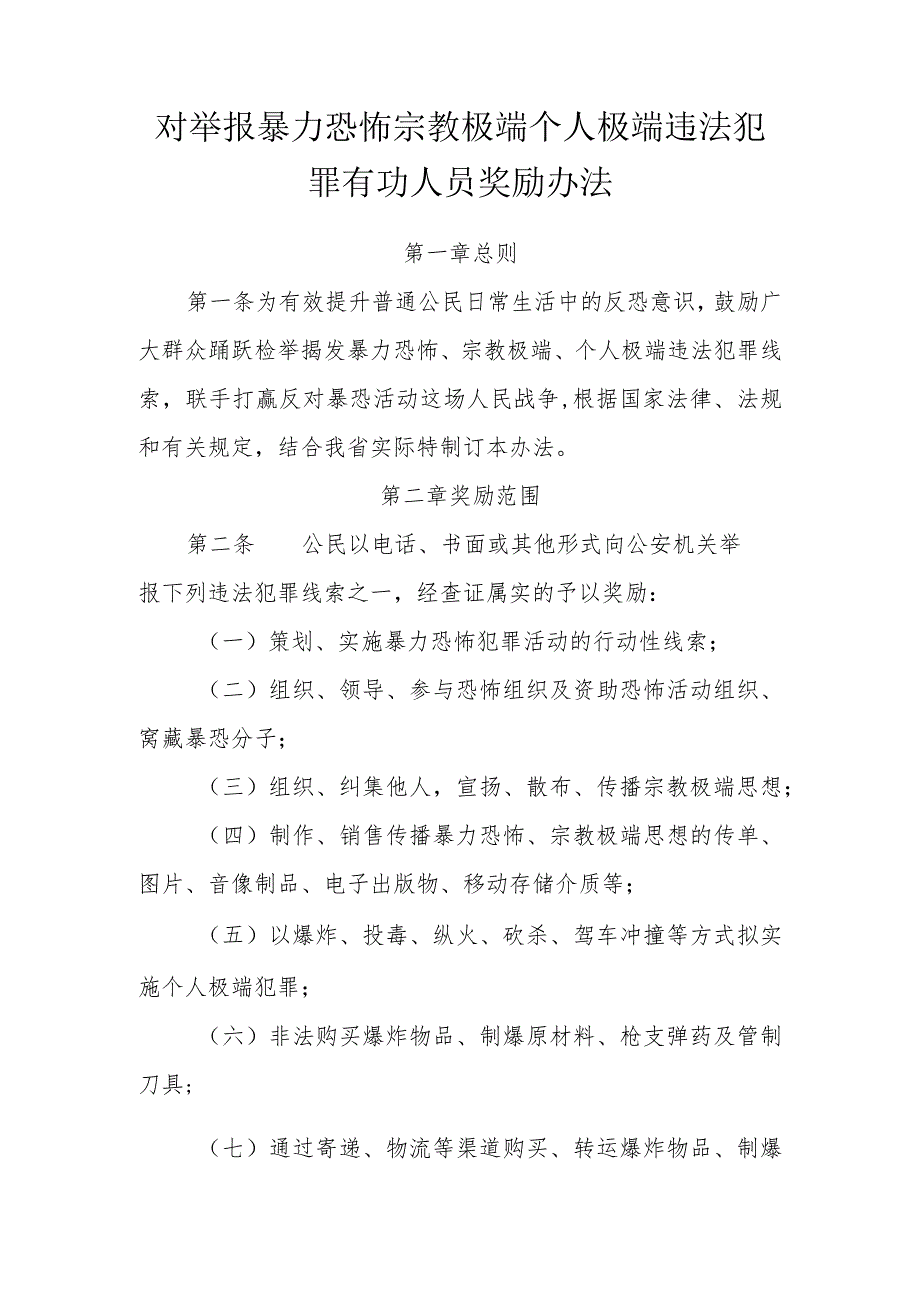 对举报暴力恐怖宗教极端个人极端违法犯
罪有功人员奖励办法
第一章总则
第一条为有效提升普通公民日常生活中的反恐意识，鼓励广
大群众踊跃检举揭发暴力恐怖、宗教极端、个人极端违法犯罪线
索，联手打赢反对暴恐活动这场人民战争,根据国家法律、法规
和有关规定，结合我省实际特制订本办法。
第二章奖励范围
第二条 公民以电话、书面或其他形式向公安机关举
报下列违法犯罪线索之一，经查证属实的予以奖励：
（一）策划、实施暴力恐怖犯罪活动的行动性线索；
（二）组织、领导、参与恐怖组织及资助恐怖活动组织、
窝藏暴恐分子；
（三）组织、纠集他人，宣扬、散布、传播宗教极端思想；
（四）制作、销售传播暴力恐怖、宗教极端思想的传单、
图片、音像制品、电子出版物、移动存储介质等；
（五）以爆炸、投毒、纵火、砍杀、驾车冲撞等方式拟实
施个人极端犯罪；
（六）非法购买爆炸物品、制爆原材料、枪支弹药及管制
刀具;
（七）通过寄递、物流等渠道购买、转运爆炸物品、制爆